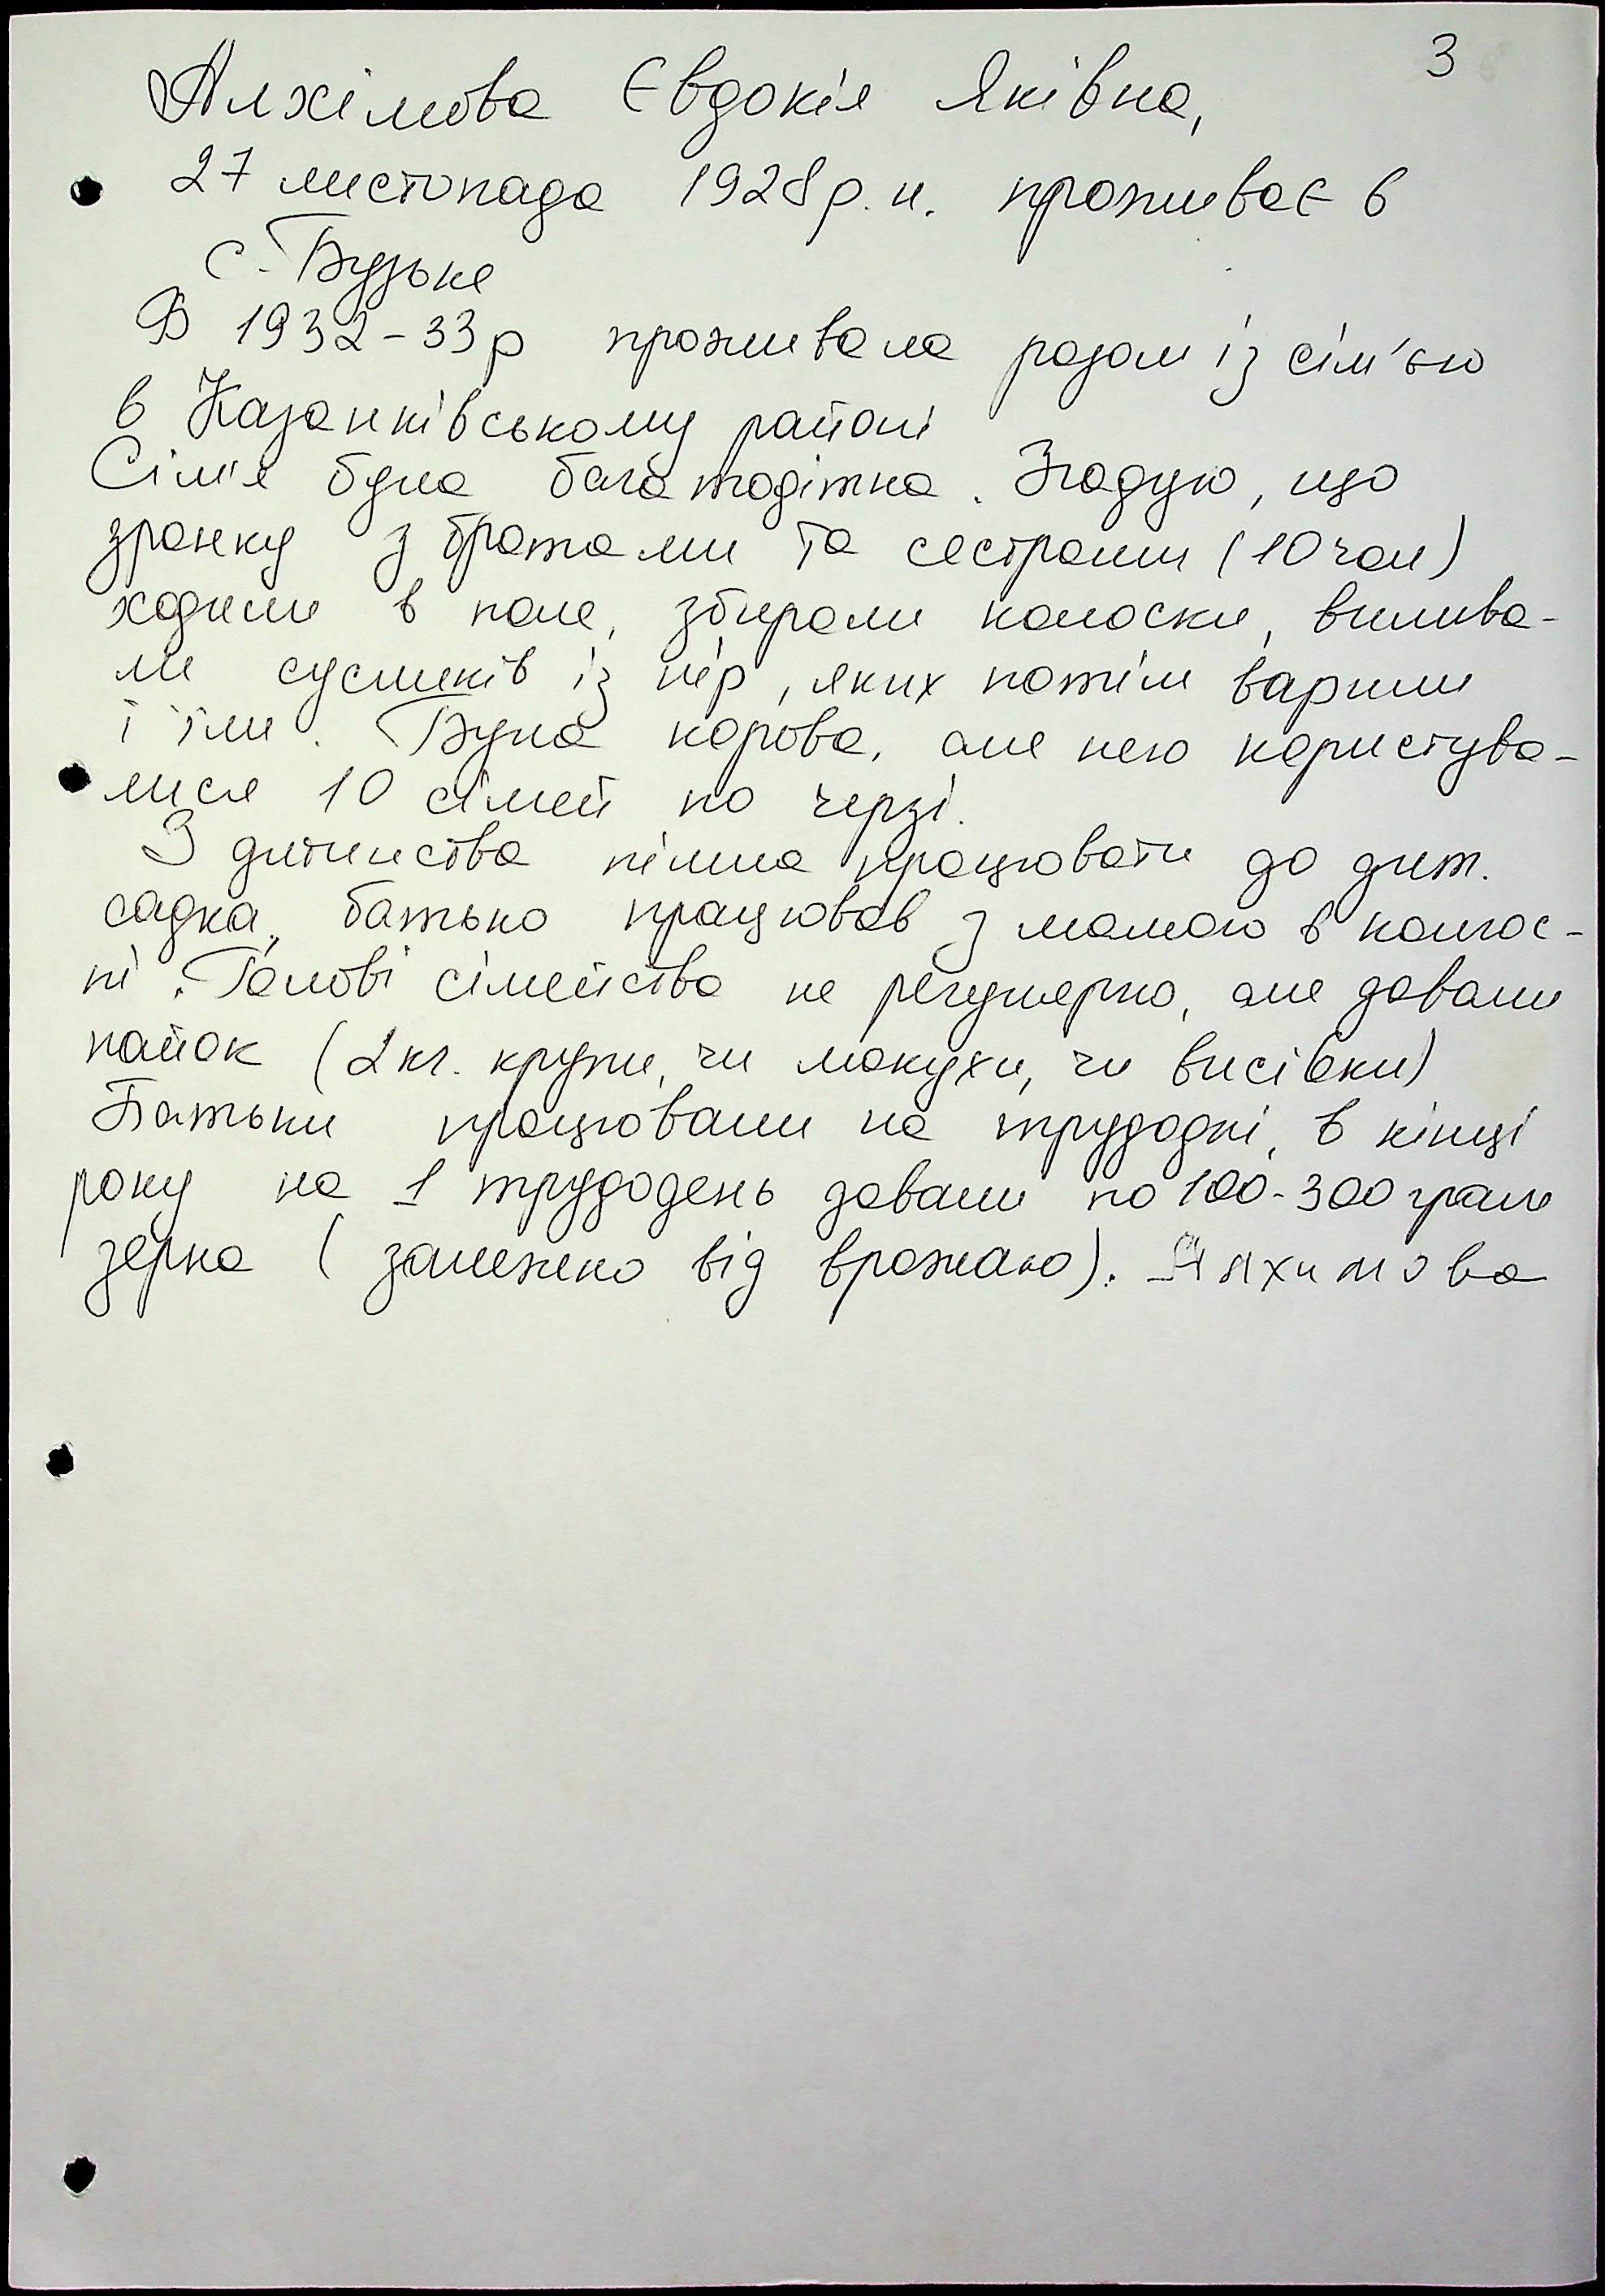 3
Алхімова Євдокія Яківна,
27 листопада 1928 р. н. проживає в
с. Бузьке
В 1932-33р проживала разом із сім'єю
в Казанківському районі
Сім'я була багатодітна. Згадую, що
зранку з братами та сестрами (10 чол)
ходили в поле, збирали колоски, вилива-
ли сусликів із нір, яких потім варили
і їли. Була корова, але нею користува-
лися 10 сімей по черзі.
З дитинства пішла працювати до дит.
садка, батько працював з мамою в колгос-
пі. Голові сімейства не регулярно, але давали
пайок (2 кг. крупи, чи макухи, чи висівки)
Батьки працювали на трудодні, в кінці
року на 1 трудодень давали по 100-300 грам
зерна (залежно від врожаю). Алхимова